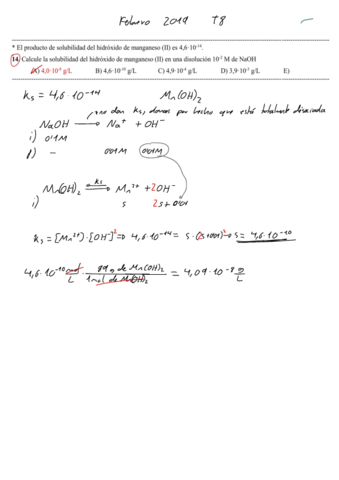 Febrero 2019 T8
* El producto de solubilidad del hidróxido de manganeso (II) es 4,6·10⁻¹⁴.
14. Calcule la solubilidad del hidróxido de manganeso (II) en una disolución 10⁻² M de NaOH
A) 4,0·10⁻⁸ g/L B) 4,6·10⁻¹⁰ g/L C) 4,9·10⁻⁴ g/L D) 3,9·10⁻⁵ g/L E)
Ks = 4,6·10⁻¹⁴ Mn(OH)₂
no dan Ks, damos por hecho que está totalmente disociada
NaOH ⟶ Na⁺ + OH⁻
i) 0'01M
f) – 0'01M 0'01M
Mn(OH)₂ ⇌ Ks Mn²⁺ + 2OH⁻
i) s 2s+0'01
Ks = [Mn²⁺]·[OH⁻]² ⇒ 4,6·10⁻¹⁴ = s·(2s+0'01)² ⇒ s = 4,6·10⁻¹⁰
4,6·10⁻¹⁰ mol/L · 89 g de Mn(OH)₂ / 1 mol de Mn(OH)₂ = 4,09·10⁻⁸ g/L